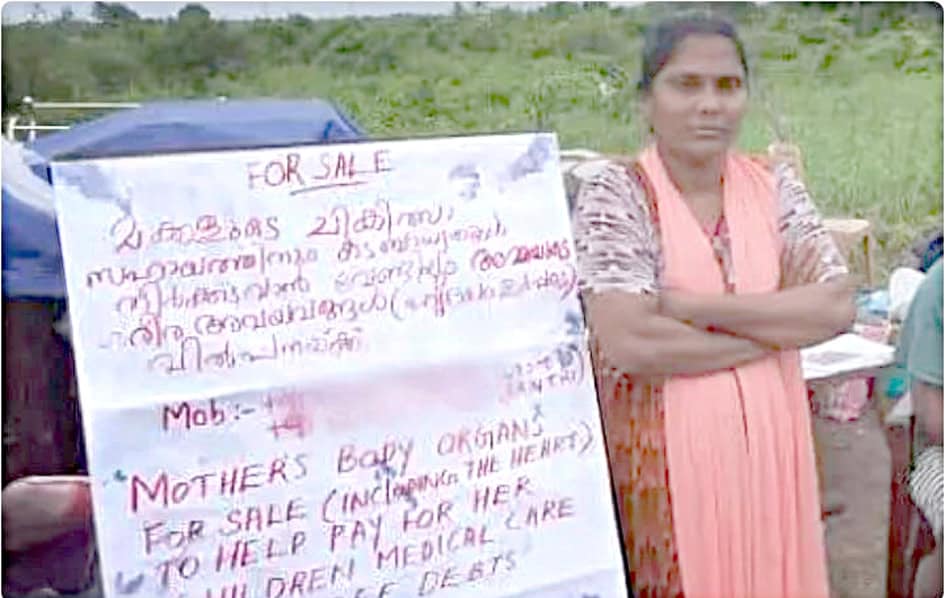 FOR SALE
മക്കളുടെ ചികിത്സാ
സഹായത്തിനും കടബാധ്യതകൾ
വേണ്ടിയും അമ്മയുടെ
അവയവങ്ങൾ
വിൽപനയ്ക്ക്
Mob:-
MOTHERS BODY ORGANS
FOR SALE (INCLUDING THE HEART)
TO HELP PAY FOR HER
CHILDREN MEDICAL CARE
DEBTS